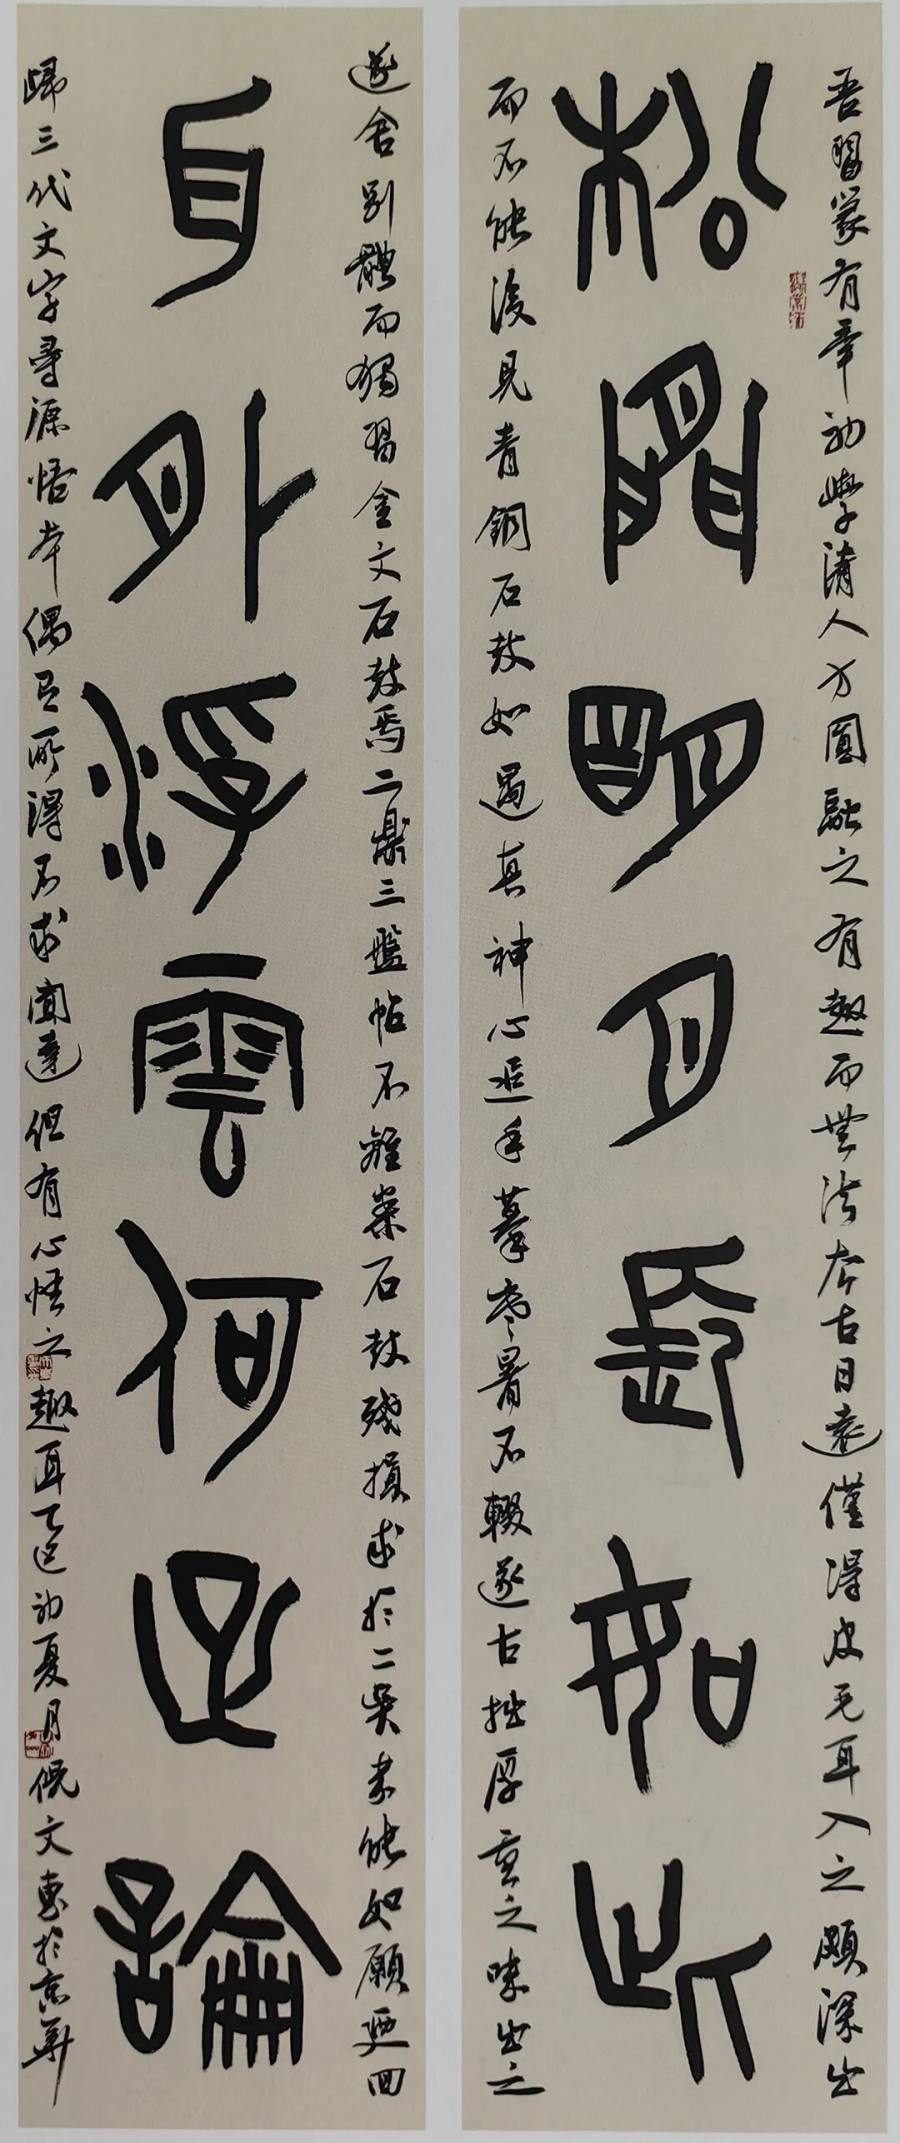 吾習篆有年初學清人方圓融之有趣而無法本古日遠僅得皮毛耳入之頗深出
松間明月長如此
而不能後見青銅石鼓如遇真神心追手摹寒暑不輟遂古拙厚重之味出之
遂舍別體而獨習金文石鼓焉二鼎三盤帖不離案石鼓殘損求於二吳未能如願廼回
身外浮雲何足論
歸三代文字尋源悟本偶有所得不求聞達但有心悟之趣耳 初夏月 文惠於京華